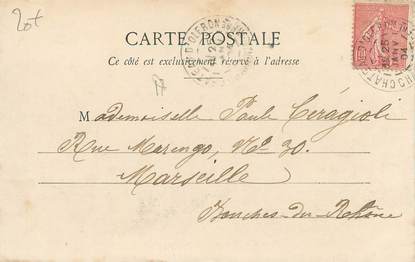 CARTE POSTALE
Ce côté est exclusivement réservé à l'adresse
Mademoiselle Paule Ceragioli
Rue Marengo, No 30.
Marseille
Bouches-du-Rhône